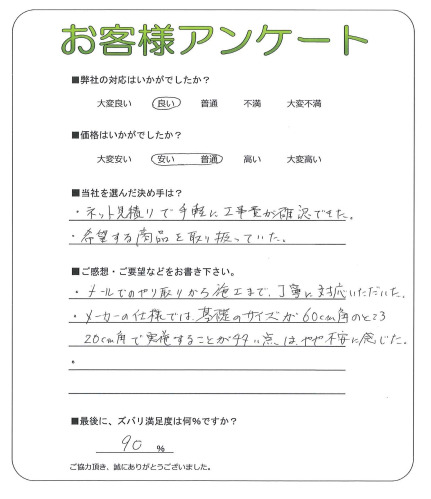 お客様アンケート
■弊社の対応はいかがでしたか？
大変良い 良い 普通 不満 大変不満
■価格はいかがでしたか？
大変安い 安い 普通 高い 大変高い
■当社を選んだ決め手は？
・ネット見積りで手軽に工事費が確認できた。
・希望する商品を取り扱っていた。
■ご感想・ご要望などをお書き下さい。
・メールでのやり取りから施工まで、丁寧に対応いただいた。
・メーカーの仕様では、基礎のサイズが60cm角のところ
20cm角で実施することが多い点は、やや不安に感じた。
・
■最後に、ズバリ満足度は何％ですか？
90 ％
ご協力頂き、誠にありがとうございました。